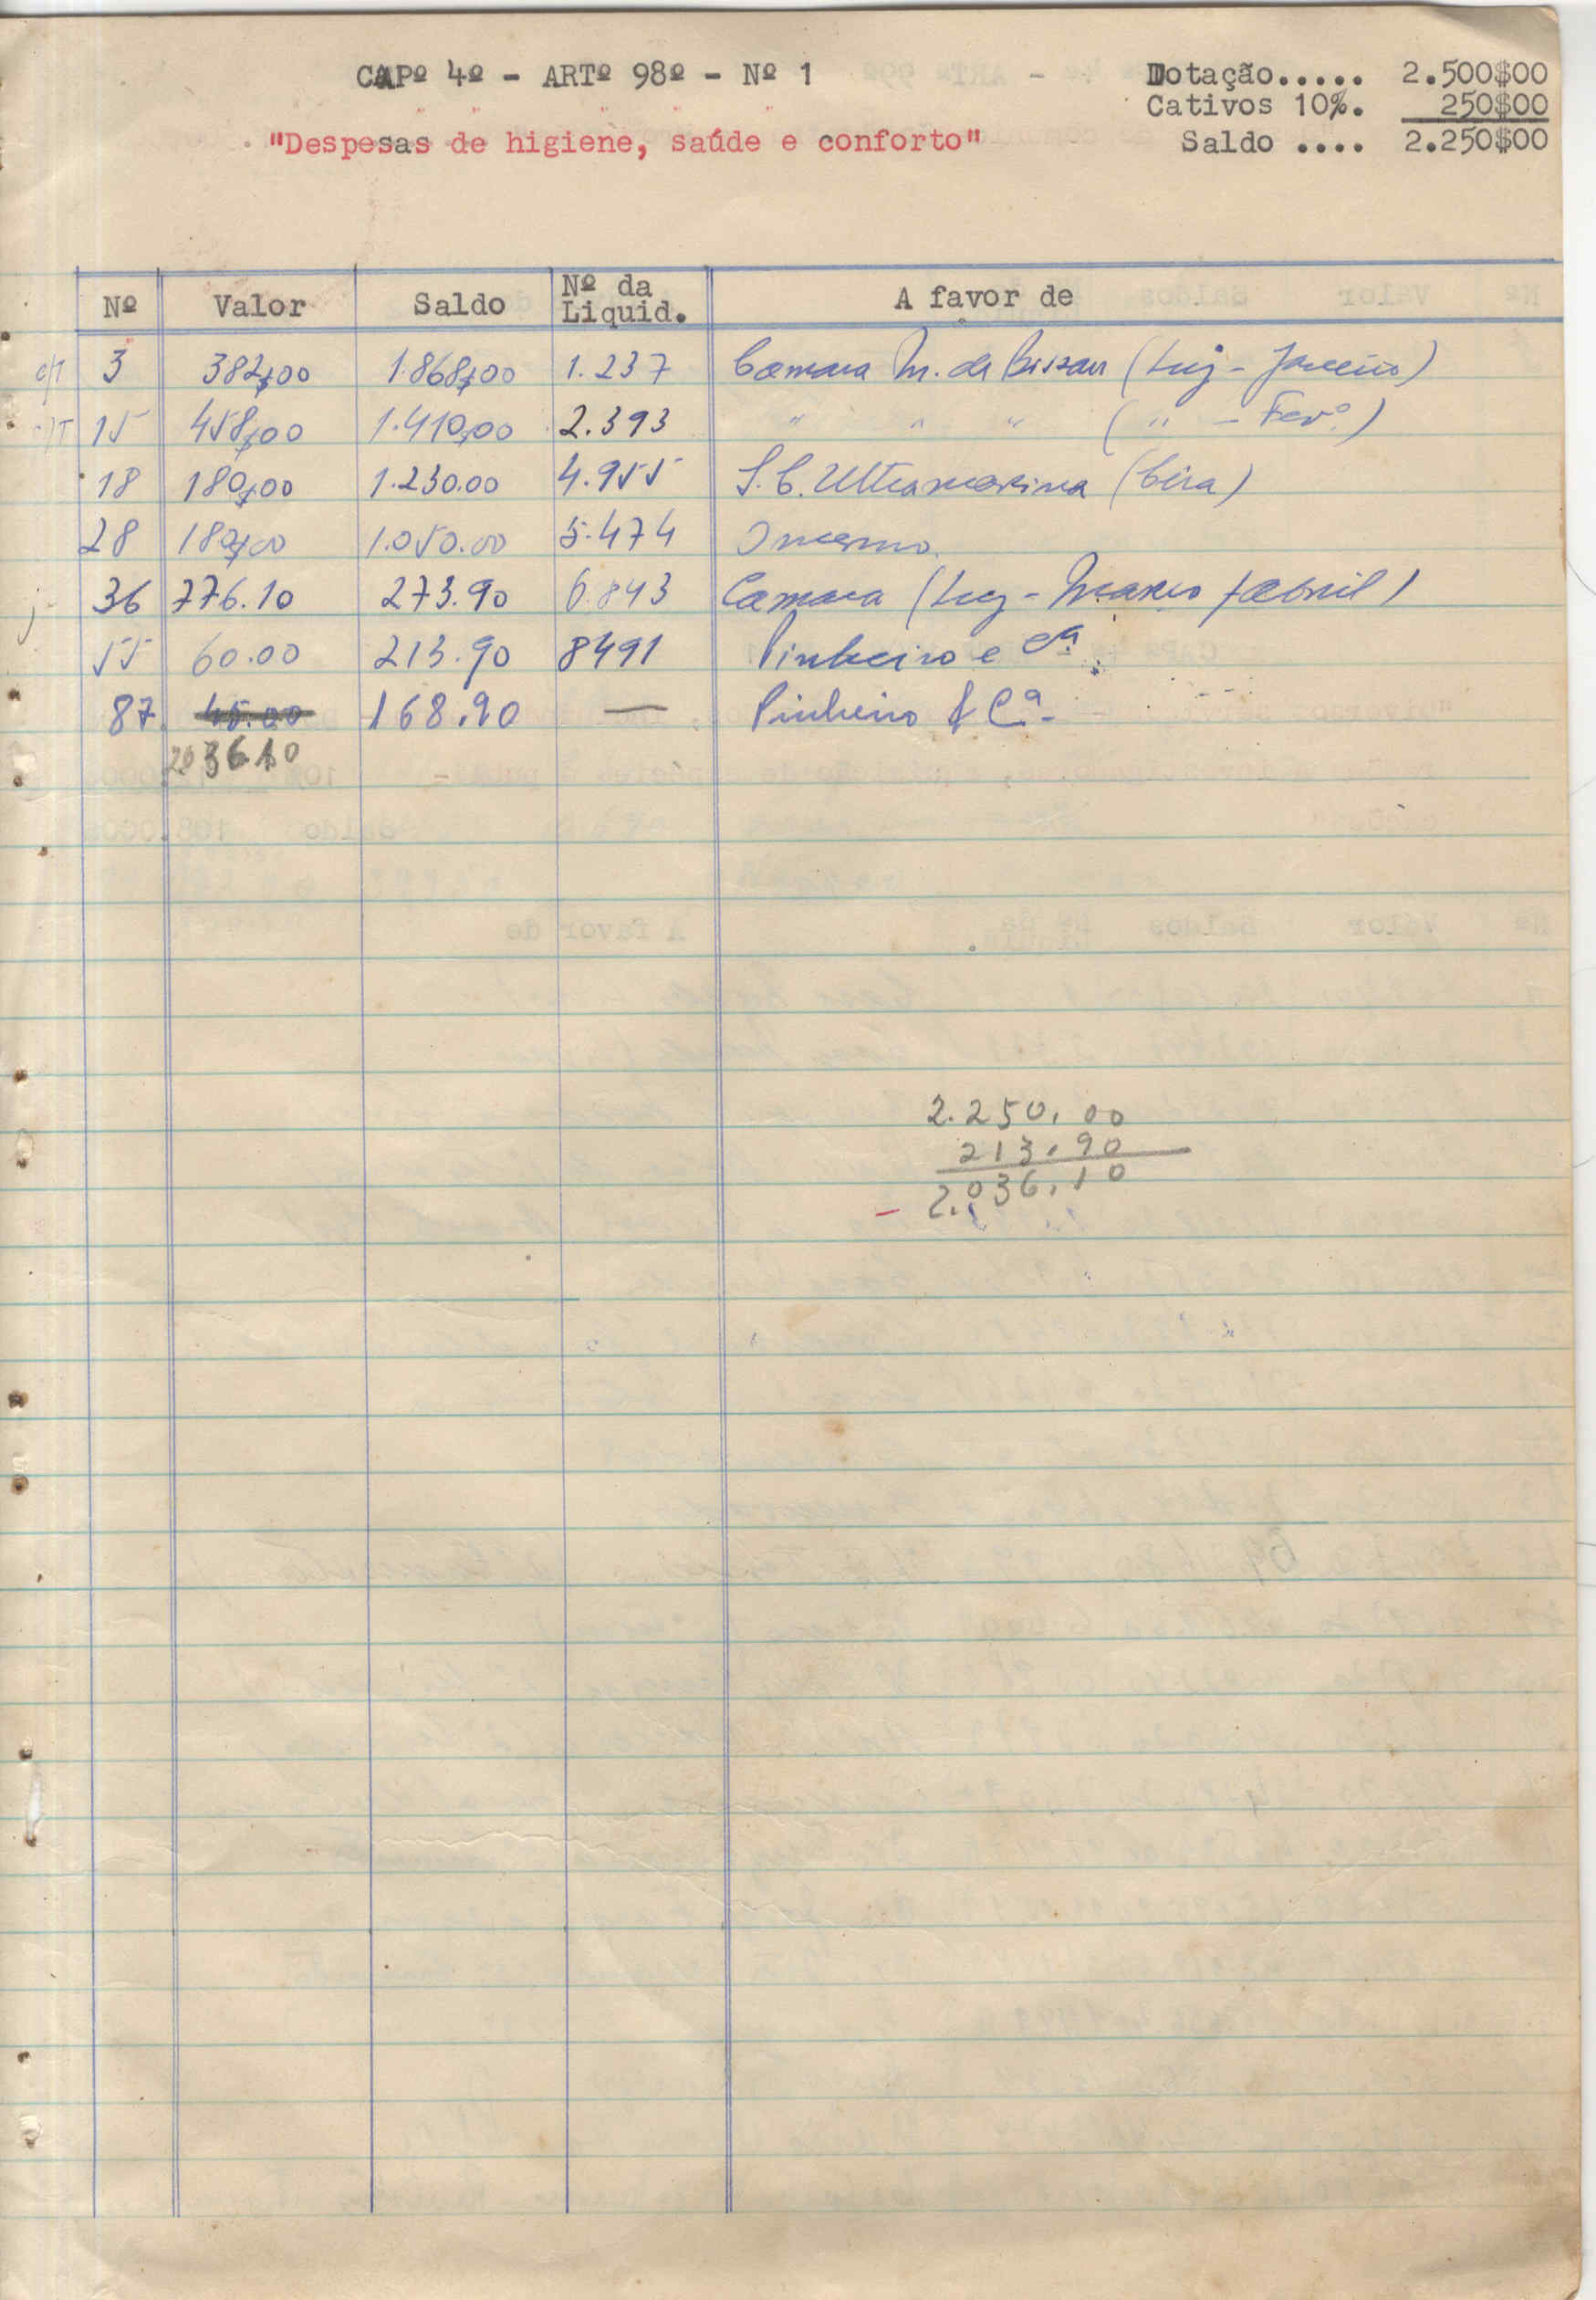 CAPº 4º - ARTº 98º - Nº 1
Dotação..... 2.500$00
Cativos 10%. 250$00
"Despesas de higiene, saúde e conforto"
Saldo .... 2.250$00
Nº Valor Saldo Nº da Liquid. A favor de
c/T 3 382$00 1.868$00 1.237 Camara M. de Bissau (Luz - Janeiro)
c/T 15 458$00 1.410$00 2.393 " " " ( " - Fevº.)
18 180$00 1.230.00 4.955 S. C. Ultramarina (Cêra)
28 180$00 1.050.00 5.474 Omesmo.
36 776.10 273.90 6.843 Camara (Luz - Março /Abril)
55 60.00 213.90 8491 Pinheiro e Cª.
87 45.00 168.90 — Pinheiro & Cª.
2.036.10
2.250,00
213,90
- 2.036,10